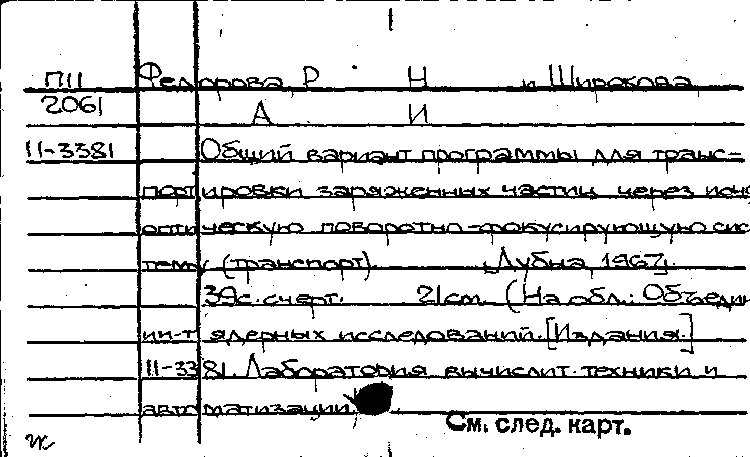 П11 Федорова, Р. Н. и Широкова,
2061 А. И.
11-3381 Общий вариант программы для транс-
портировки заряженных частиц через ионно-
оптическую поворотно-фокусирующую сис-
тему (транспорт). Дубна, 1967.
39с. с черт. 21см. (На обл.: Объедин.
ин-т ядерных исследований. [Издания.]
11-3381. Лаборатория вычислит. техники и
автоматизации)
См. след. карт.